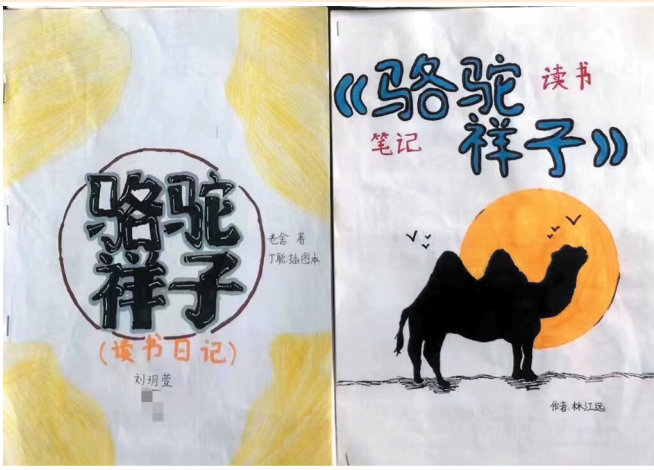 骆驼
祥子
老舍 著
丁聪插图本
(读书日记)
刘玥萱
《骆驼 读书
笔记 祥子》
作者:林江远